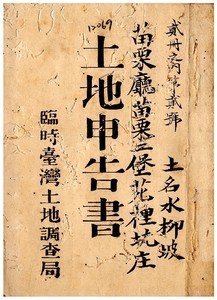 12069
貳冊之內第貳號
土名水柳坡
苗栗廳苗栗二堡花裡坑庄
土地申告書
臨時臺灣土地調查局